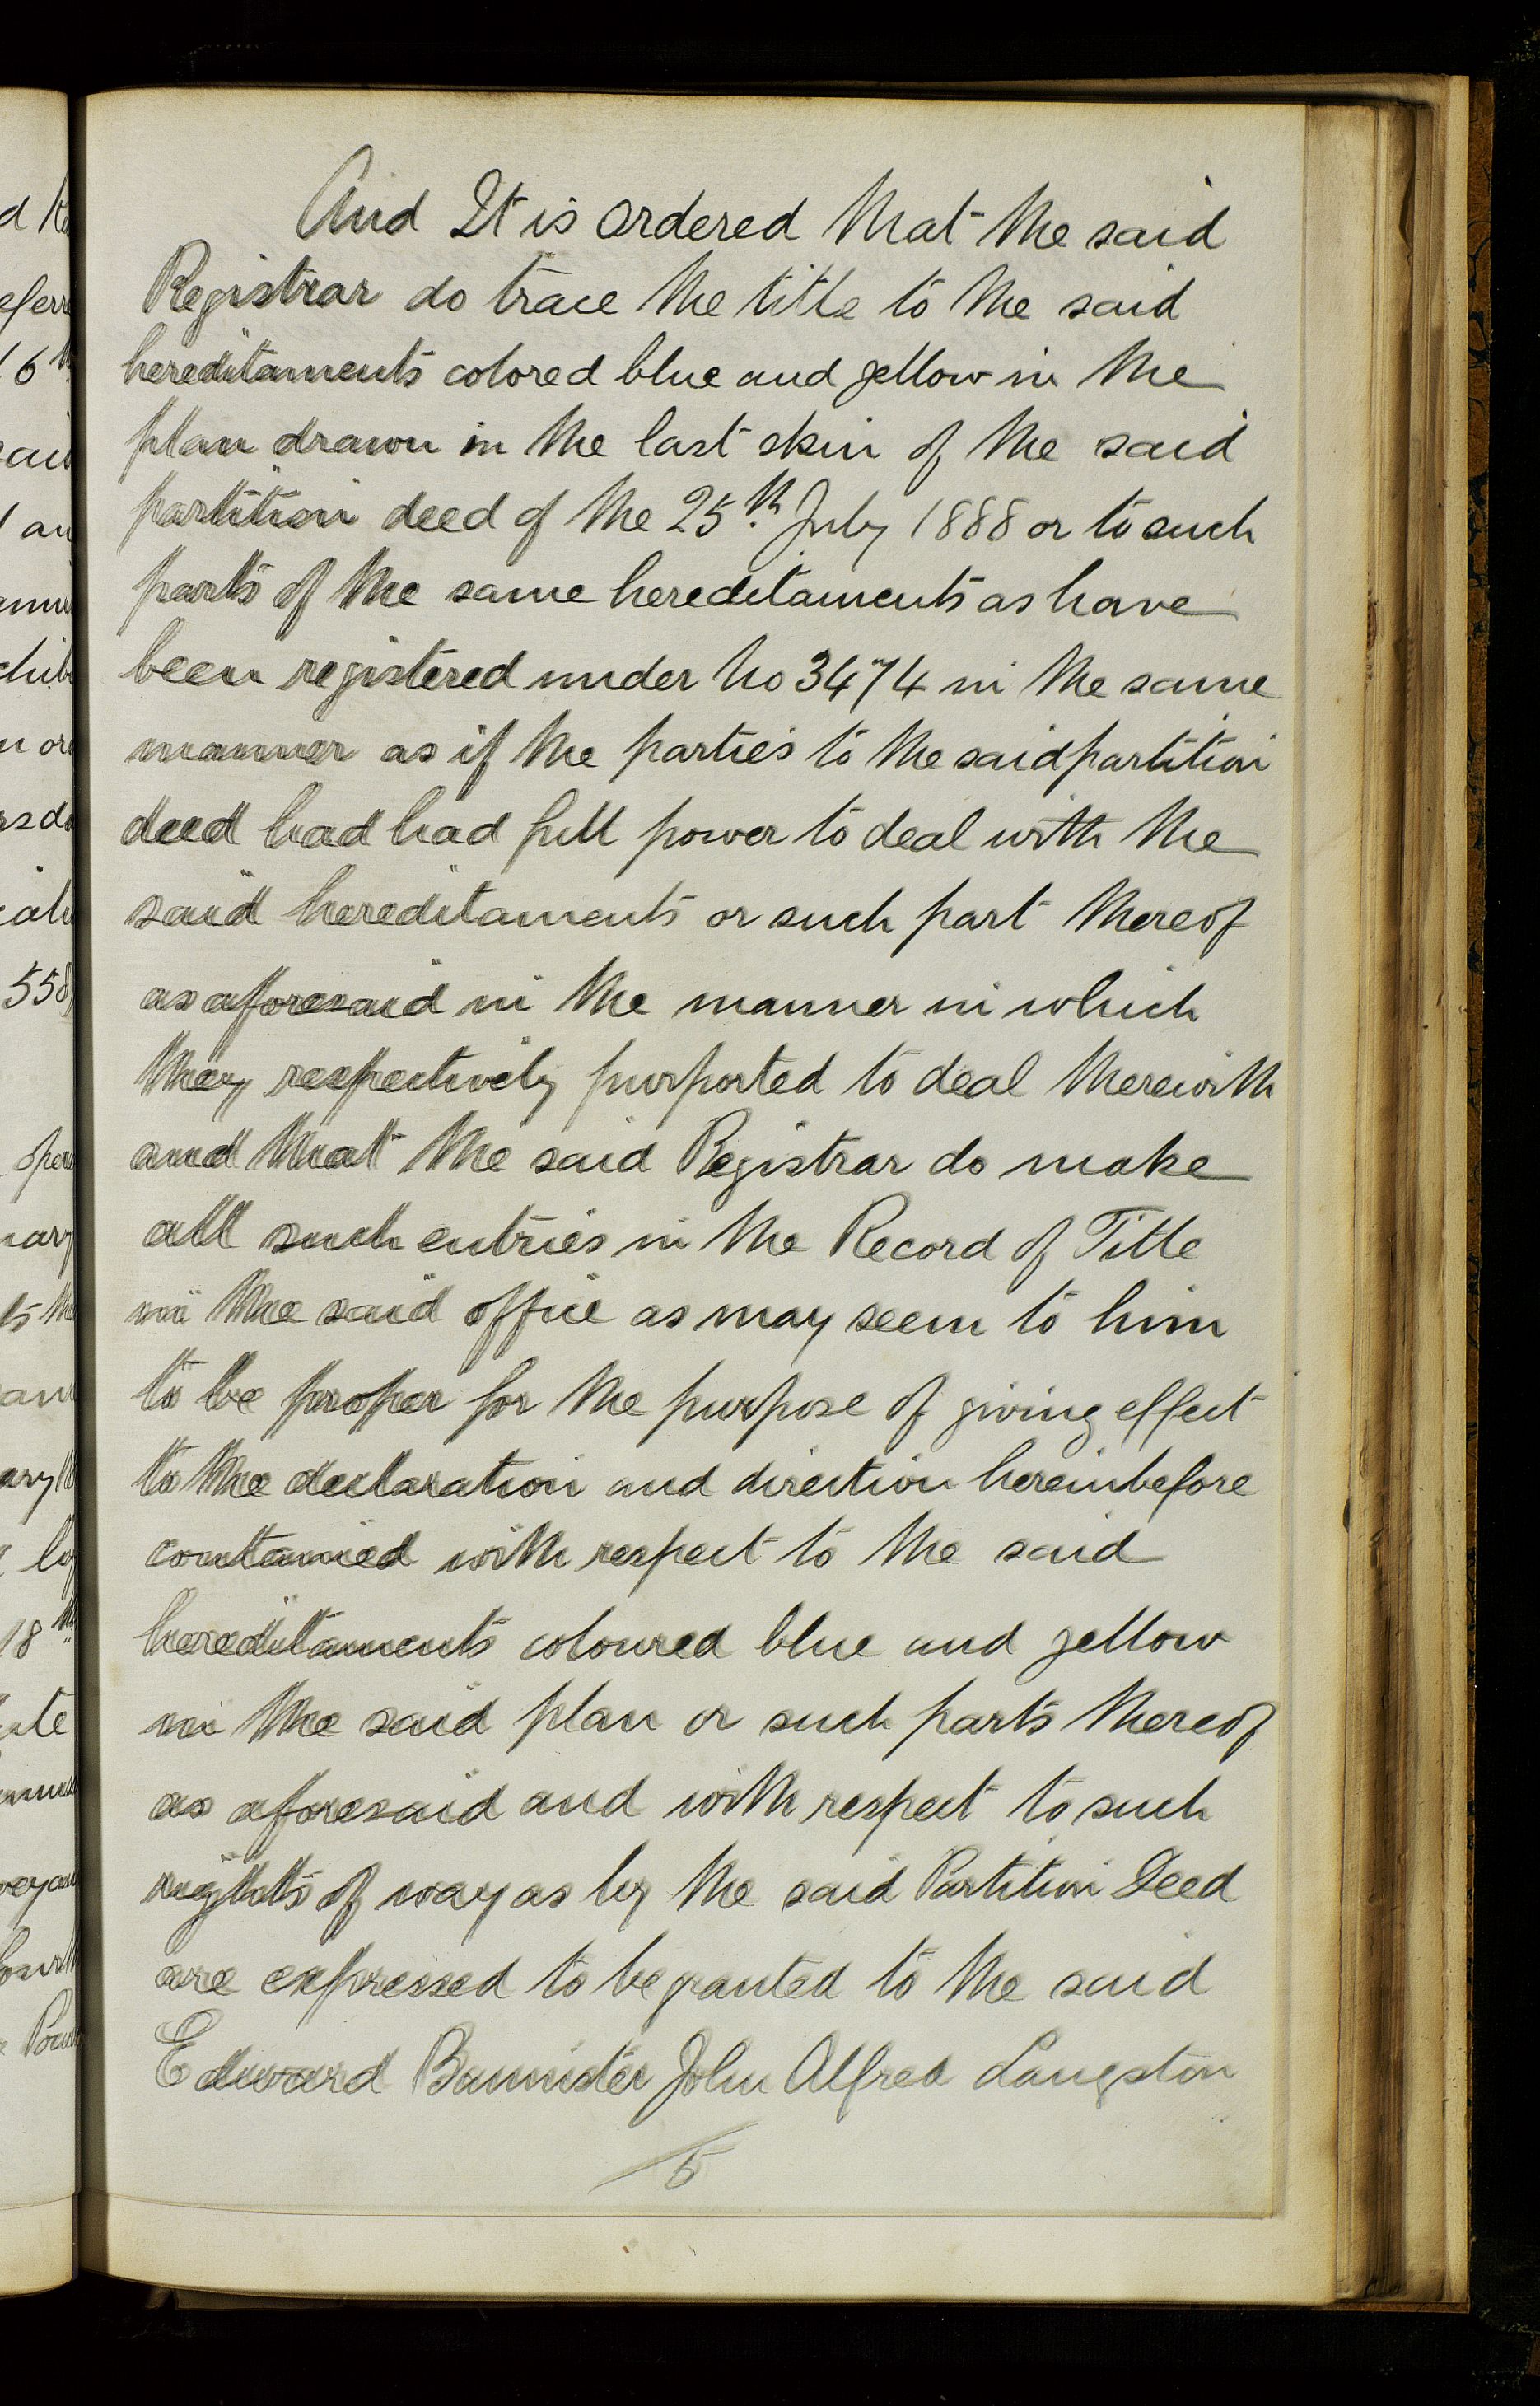 And It is ordered that the said
Registrar do trace the title to the said
hereditaments colored blue and yellow in the
plan drawn in the last skin of the said
partition deed of the 25th July 1888 or to such
parts of the same hereditaments as have
been registered under No 3474 in the same
manner as if the parties to the said partition
deed had had full power to deal with the
said hereditaments or such part thereof
as aforesaid in the manner in which
they respectively purported to deal therewith
and that the said Registrar do make
all such entries in the Record of Title
in the said office as may seem to him
to be proper for the purpose of giving effect
to the declaration and direction hereinbefore
contained with respect to the said
hereditaments coloured blue and yellow
in the said plan or such parts thereof
as aforesaid and with respect to such
rights of way as by the said Partition Deed
are expressed to be granted to the said
Edward Bannister John Alfred Langston
5